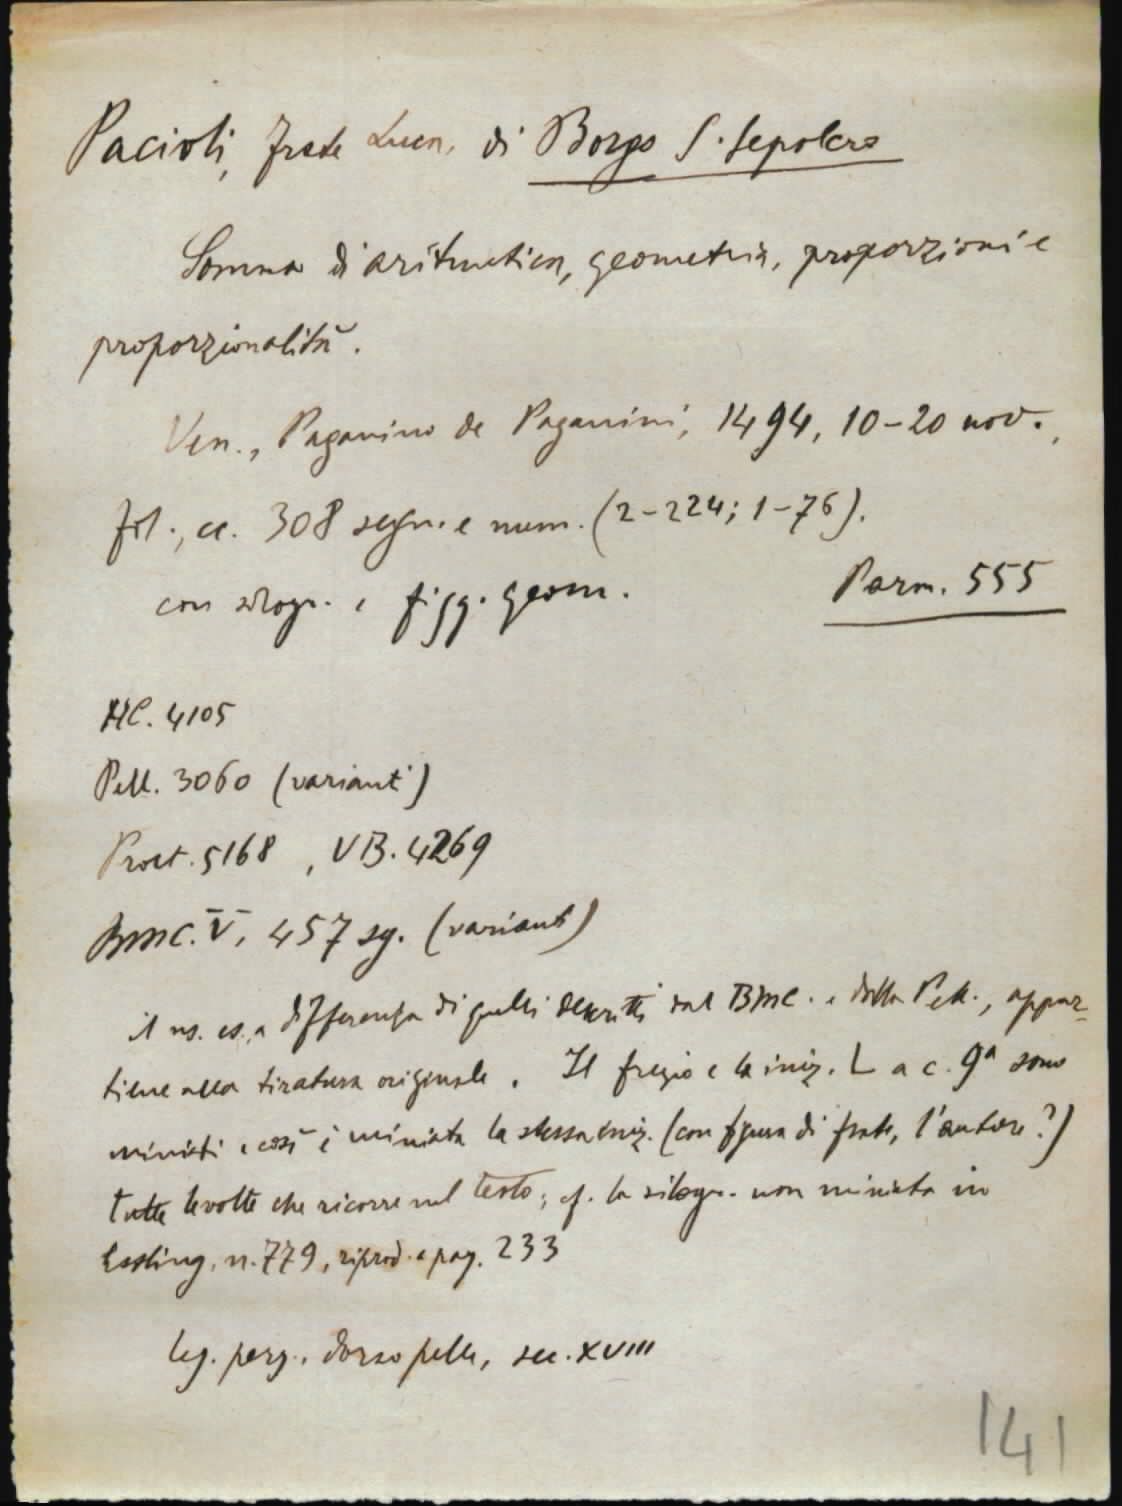 Pacioli, frate Luca, di Borgo S. Sepolcro
Somma di aritmetica, geometria, proporzioni e
proporzionalità.
Ven., Paganino de Paganini, 1494, 10-20 nov.,
fol., cc. 308 segn. e num. (2-224; 1-76).
con silogr. e figg. geom.
Parm. 555
HC. 4105
Pell. 3060 (varianti)
Proct. 5168, VB. 4269
BMC. V, 457 sg. (varianti)
il ns. es., a differenza di quelli descritti dal BMC. e dalla Pell., appar-
tiene alla tiratura originale. Il fregio e la iniz. L a c. 9ª sono
miniati e così è miniata la stessa iniz. (con figura di frate, l'autore?)
tutte le volte che ricorre nel testo; cf. la silogr. non miniata in
Essling, n. 779, riprod. a pag. 233
leg. perg., dorso pelle, sec. XVIII
141